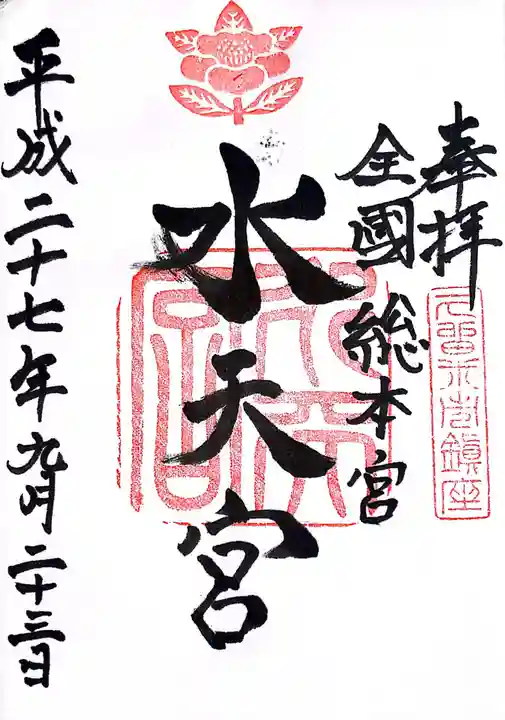 奉拝
全國総本宮
水天宮
平成二十七年九月二十三日